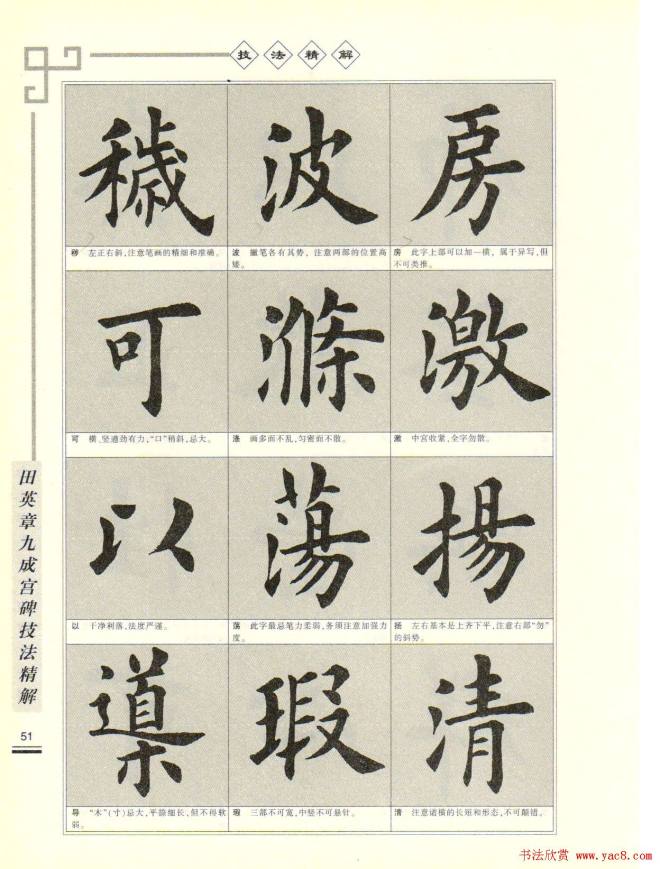 技法精解
穢 波 房
秽 左正右斜,注意笔画的精细和准确。
波 撇笔各有其势，注意两部的位置高
矮。
房 此字上部可以加一横，属于异写,但
不可类推。
可 滌 激
可 横、竖遒劲有力,“口”稍斜,忌大。
涤 画多而不乱,匀密而不散。
激 中宫收紧,全字勿散。
以 蕩 揚
以 干净利落,法度严谨。
荡 此字最忌笔力柔弱,务须注意加强力
度。
扬 左右基本是上齐下平,注意右部“勿”
的斜势。
導 瑕 清
导 “木”(寸)忌大,平捺细长,但不得软
弱。
瑕 三部不可宽,中竖不可悬针。
清 注意诸横的长短和形态,不可颠错。
田英章九成宫碑技法精解
51
书法欣赏 www.yac8.com